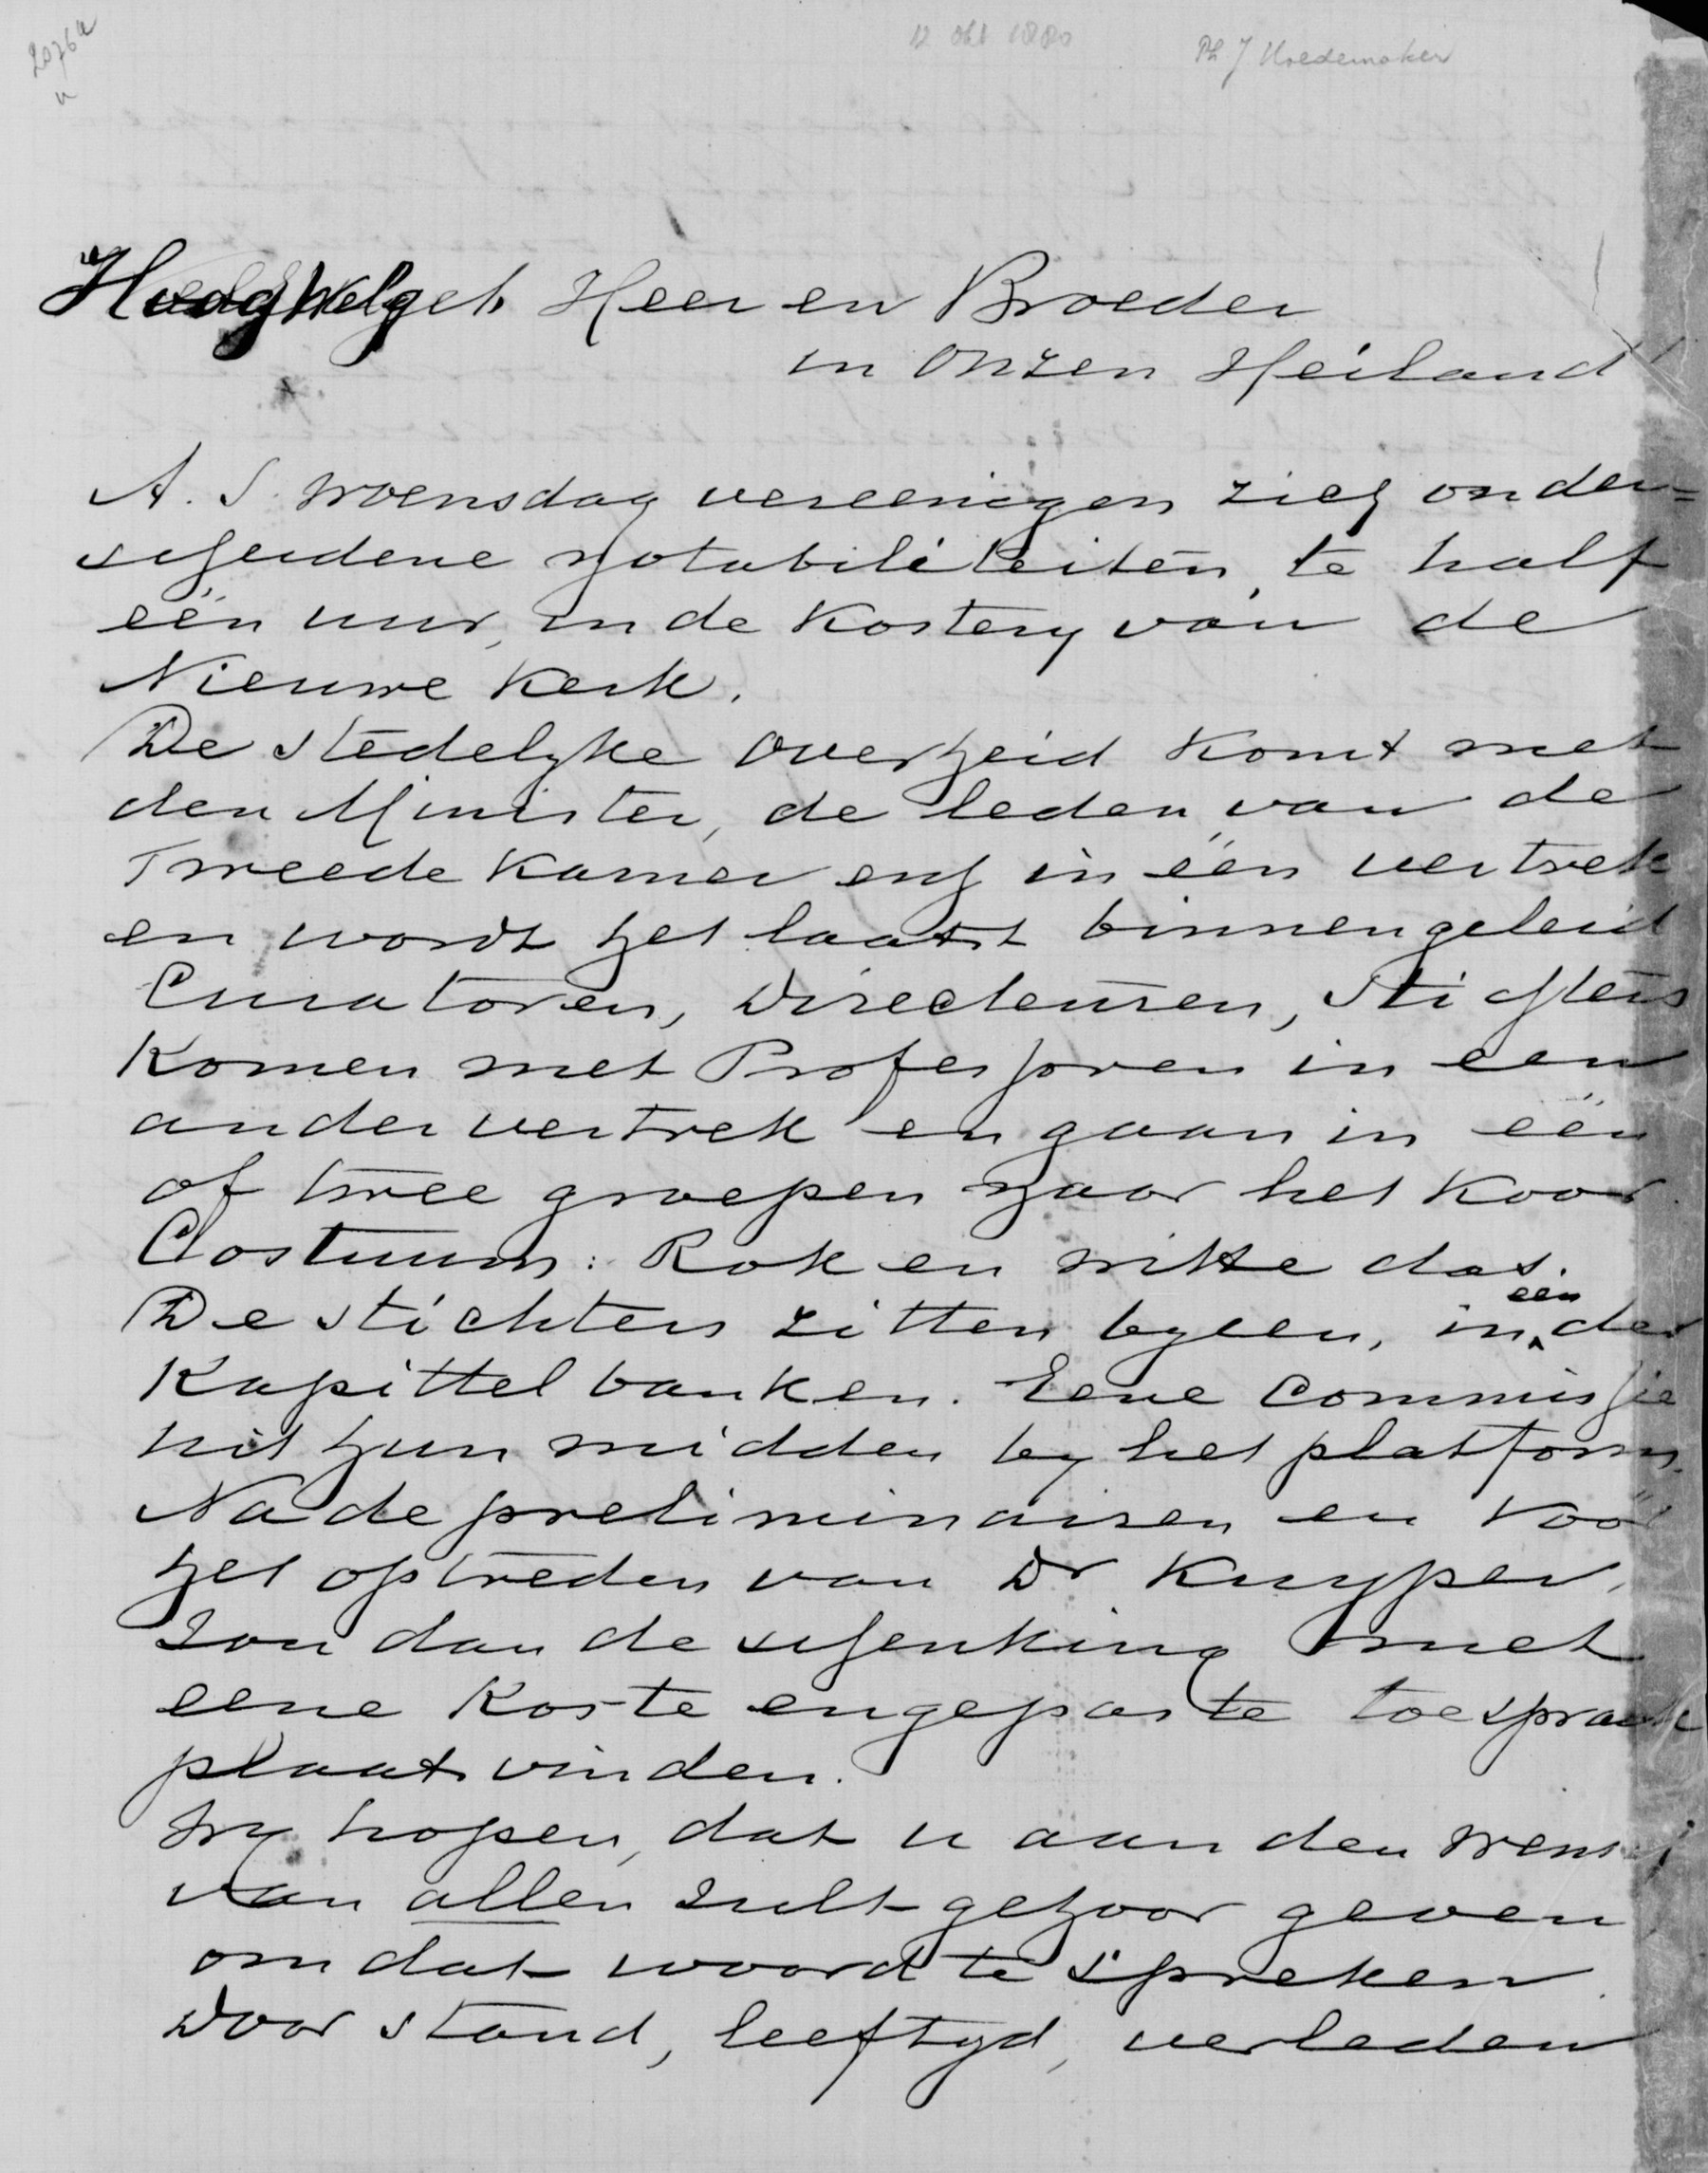 2076a
12 okt 1880
Ph J Hoedemaker
HoogWelgeb Heer en Broeder
in onzen Heiland
A. S. Woensdag vereenigen zich onder=
scheidene notabiliteiten, te half
één uur, in de kostery van de
Nieuwe Kerk.
De stedelyke overheid komt met
den Minister, de leden van de
Tweede Kamer enz in één vertrek
en wordt het laatst binnengeleid
Curatoren, Directeuren, Stichters
komen met Professoren in een
ander vertrek en gaan in één
of twee groepen naar het koor
Costuum: Rok en witte das.
De stichters zitten byeen, in één der
Kapittelbanken. Eene Commissie
uit hun midden by het platform.
Na de preliminairen en vóór
het optreden van Dr Kuyper,
zou dan de schenking met
eene korte en gepaste toespraak
plaats vinden.
Wy hopen, dat u aan den wensch
van allen zult gehoor geven
om dat woord te spreken.
Door stand, leeftyd, verleden